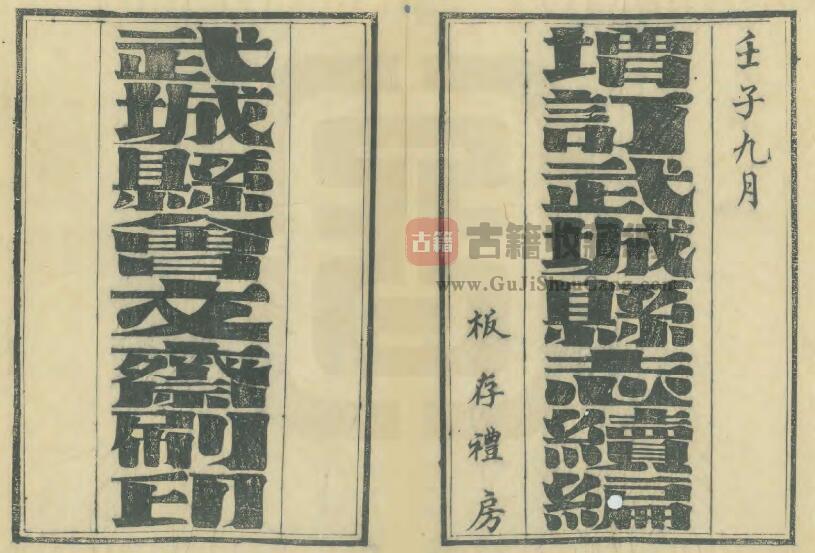 壬子九月
增訂武城縣志續編
板存禮房
武城縣會文齋刷印
古籍 古籍收藏
www.GuJiShouCang.com